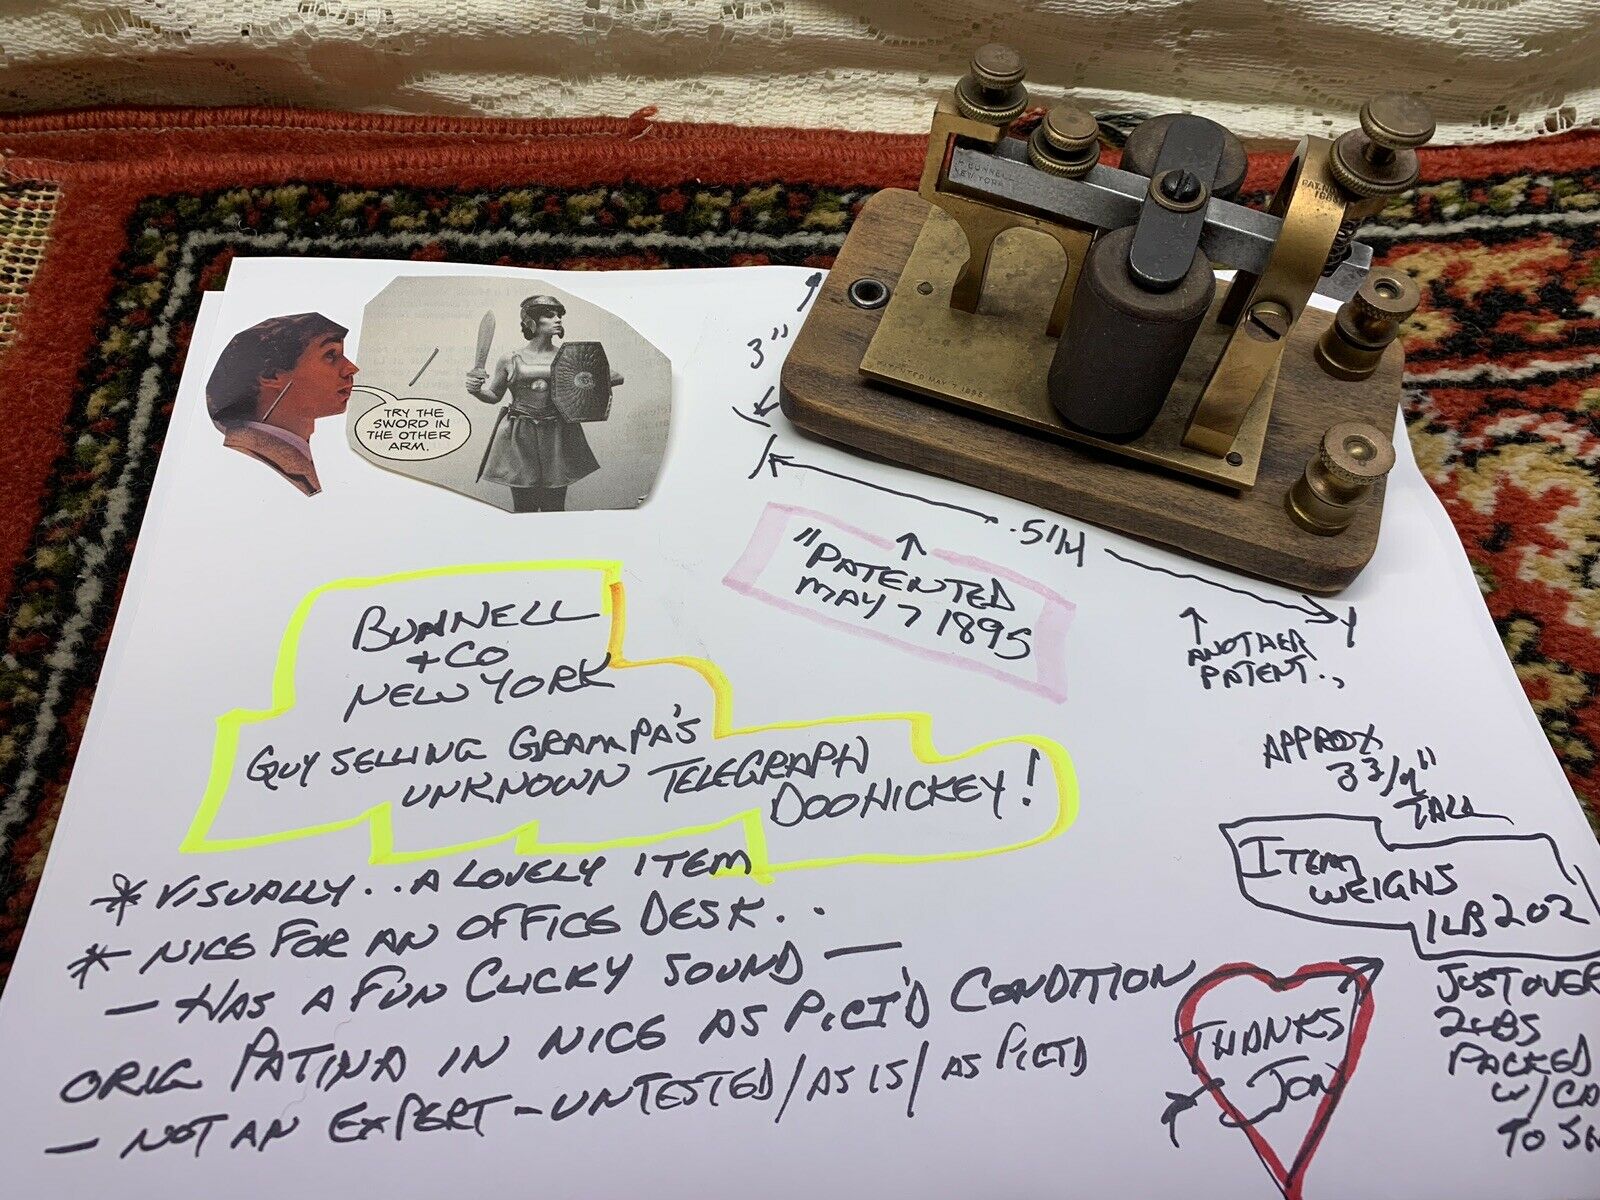 TRY THE
SWORD IN
THE OTHER
ARM.
3"
BUNNELL
NEW YORK
PATENTED MAY 7 1895
.51/4
"PATENTED
MAY 7 1895
ANOTHER
PATENT.,
APPROX
3 3/4"
TALL
BUNNELL
+ CO
NEW YORK
GUY SELLING GRAMPA'S
UNKNOWN TELEGRAPH
DOOHICKEY!
* VISUALLY.. A LOVELY ITEM
* NICE FOR AN OFFICE DESK..
- HAS A FUN CLICKY SOUND -
ORIG PATINA IN NICE AS PICT'D CONDITION
- NOT AN EXPERT - UNTESTED/AS IS/AS PICTD
ITEM
WEIGHS
1LB 2OZ
JUST OVER
2LBS
PACKED
W/
TO
THANKS
JON